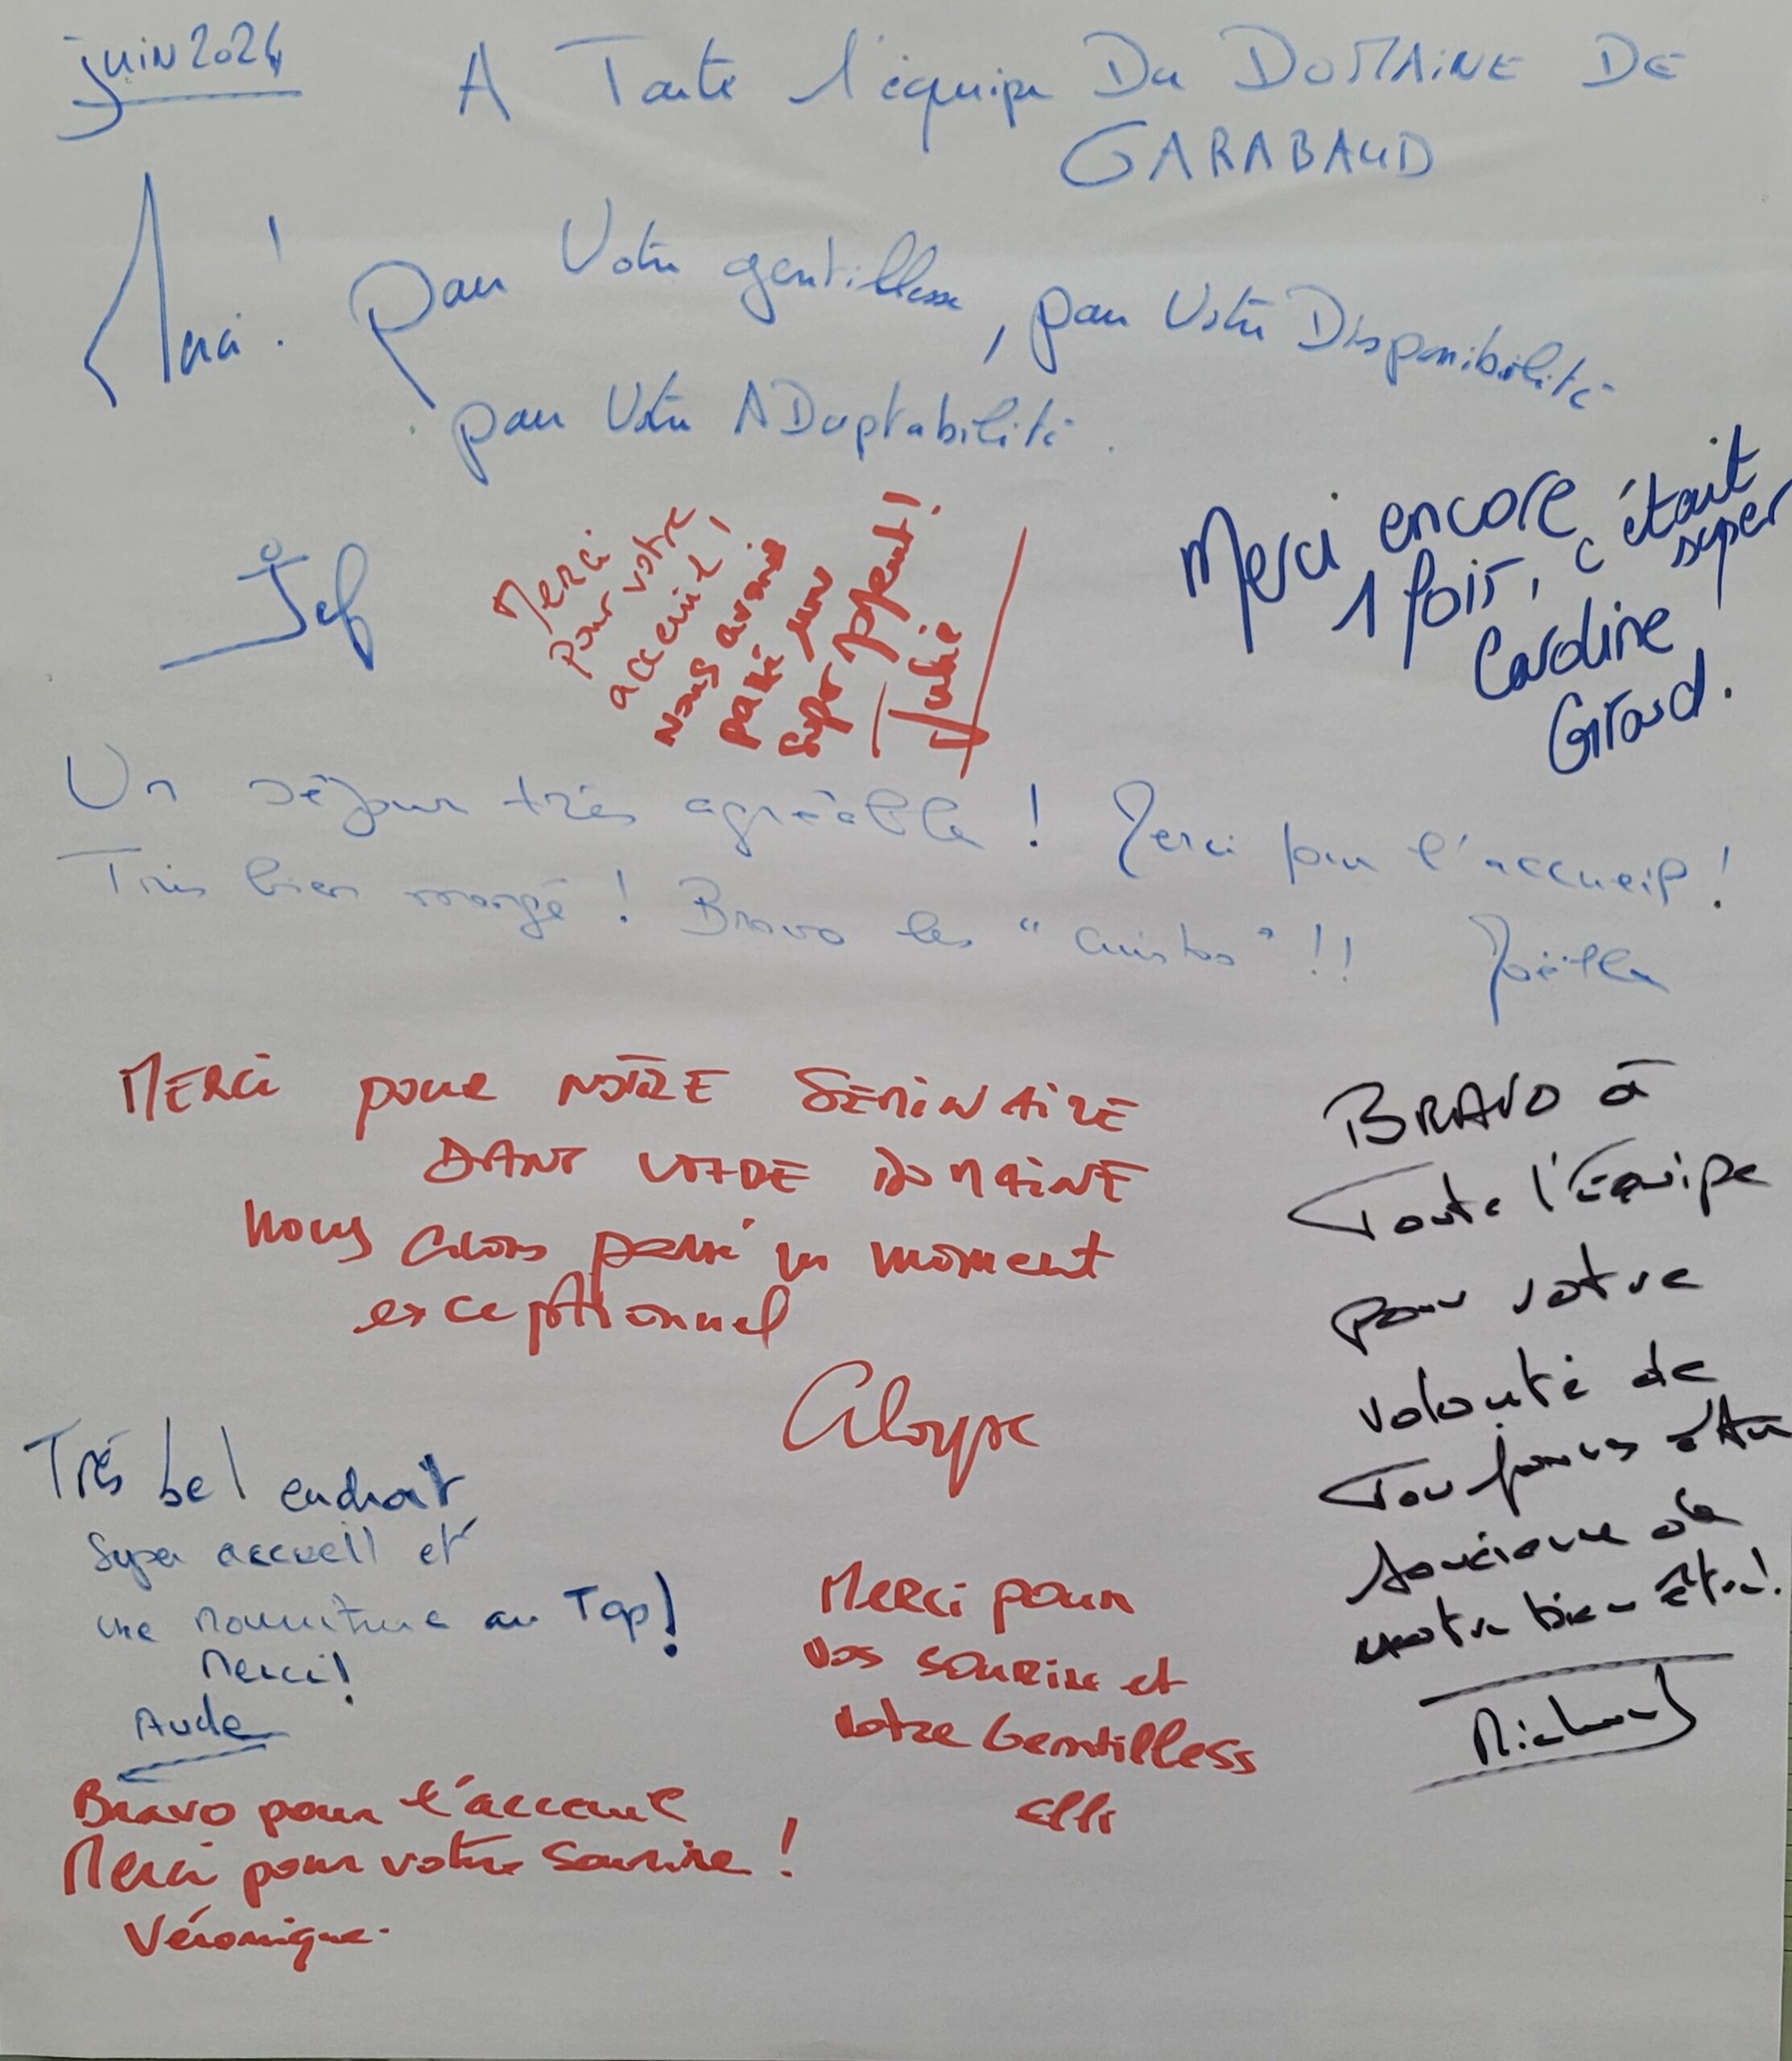 juin 2024
A Toute l'équipe Du DOMAINE DE
GARABAUD
Merci ! pour Votre gentillesse, pour Votre Disponibilité
pour Votre ADaptabilité.
Jef
Merci
pour votre
accueil !
Nous avons
passé un
super moment !
Julie
Merci encore
1 fois, c'était
super
Caroline
Girard.
Un séjour très agréable ! Merci pour l'accueil !
Très bien mangé ! Bravo les "cuistos" !! Joëlle
MERCi pour NOTRE SEMiNAiRE
DANS VOTRE DOMAiNE
Nous avons passé un moment
exceptionnel
BRAVO à
Toute l'Equipe
pour votre
volonté de
Toujours
soucieux de
notre bien être !
Richard
Très bel endroit
Super accueil et
une nourriture au Top !
Merci !
Aude
Merci pour
vos sourire et
votre Gentilless
Elli
Bravo pour l'accueil
Merci pour votre Sourire !
Véronique.